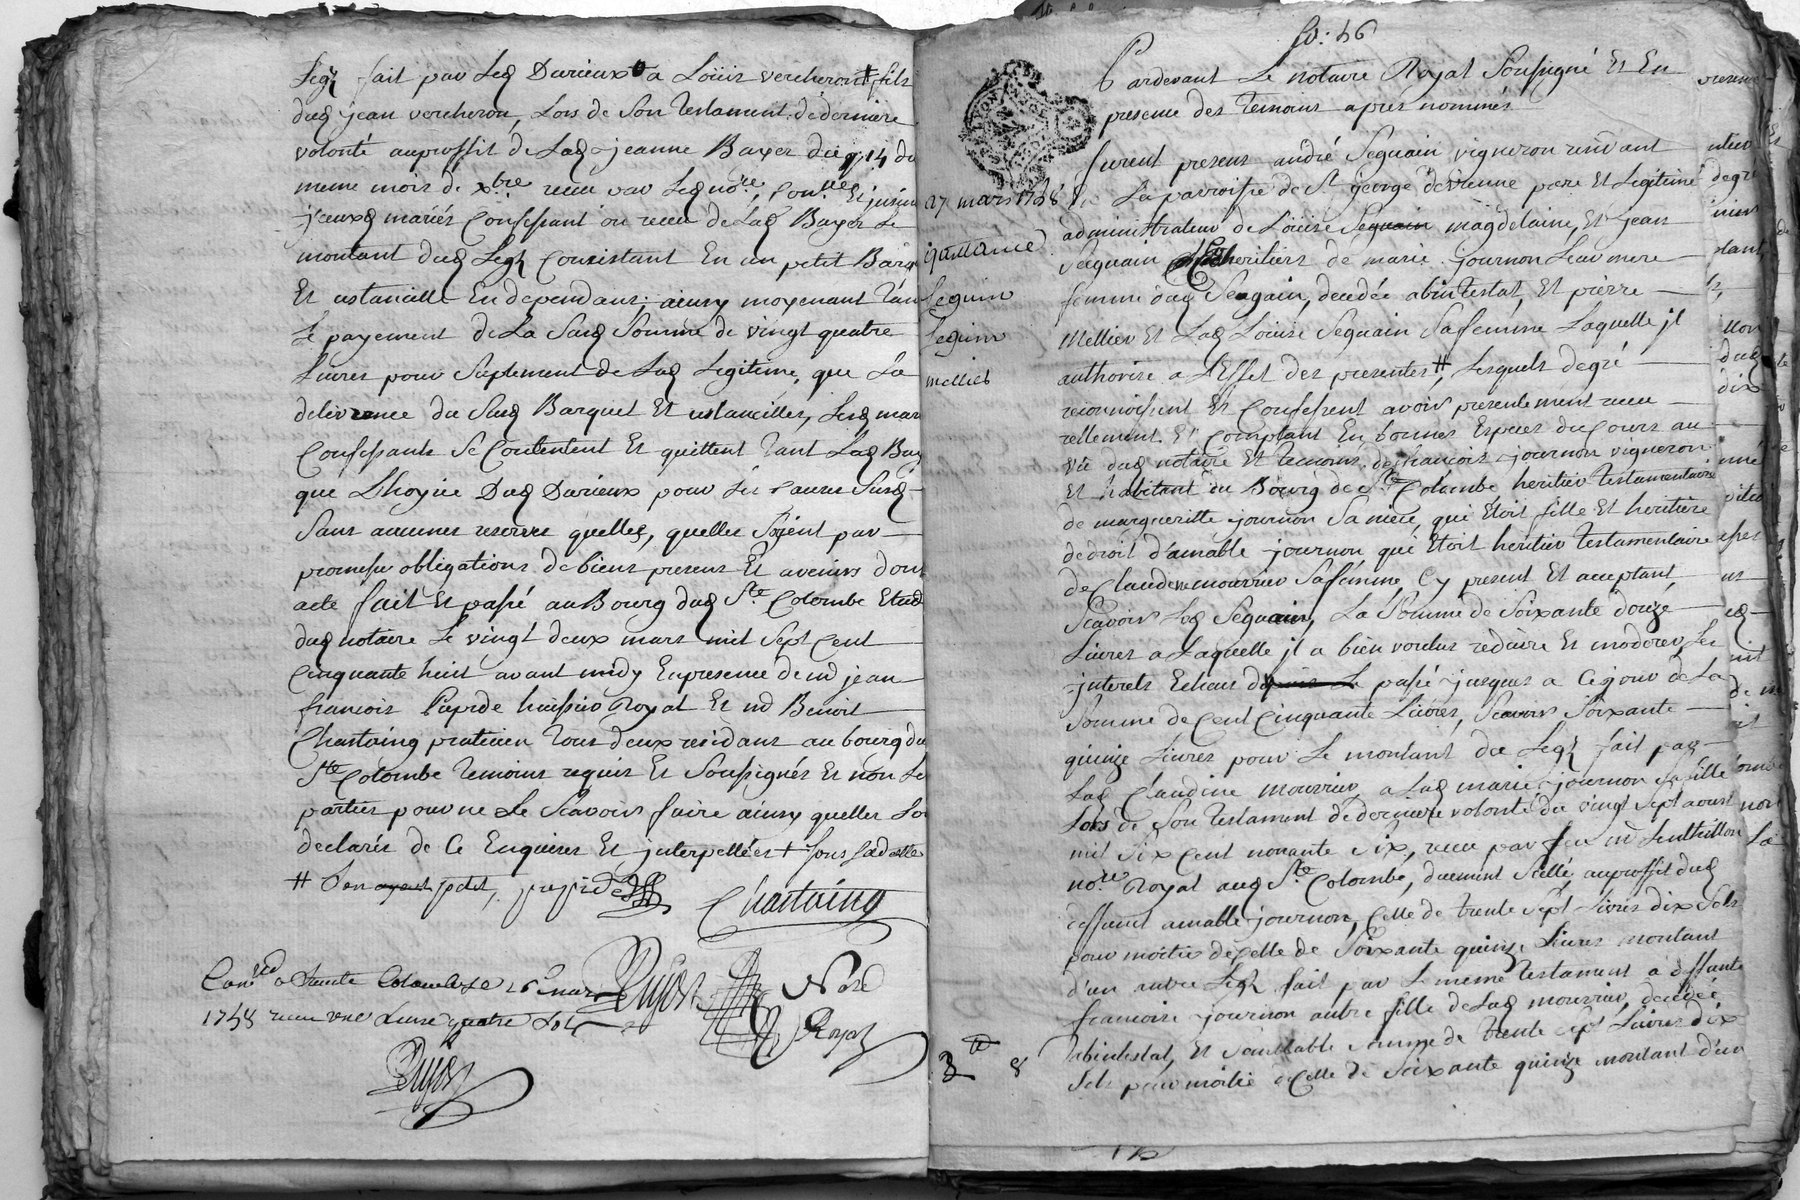 Legz fait par Led Durieux a Loüis vercheron # fils
dud jean vercheron, Lors de Son testament de derniere
volonté auproffit de Lad jeanne Bayer du 14 du
meme mois de xbre recu par Led nore, Con
iceuxd mariés Confessant on recu de Lad Bayer Le
montant dud Legz Consistant En un petit Barq
Et ustancille En dependans; ainsy moyenant tan
Le payement de La Susd Somme de vingt quatre
Livres pour Suplement de Lad Legitime, que La
delivrence du Susd Barquet Et ustancilles, Lesd mar
Confessants Se Contentent Et quittent tant Lad Bay
que Lhoyrie Dud Durieux pour Les Causes Susd
Sans aucunes reserves quelles, quelles Soyent par
promesse obligations de biens presens Et avenirs dont
acte fait Et passé au Bourg dud Ste Colombe Etude
dud notaire Le vingt deux mars mil Sept Cent
Cinquante huit avant midy En presence de md jean
francois huissier Royal Et md Benoit
Chastaing praticien tous deux residans au bourg du
Ste Colombe temoins requis Et Soussignés Et non Le
parties pour ne Le Scavoir faire ainsy quelles Lo
declarés de Ce Enquises Et interpellées +
#
Chastaing
Conlé a Sainte Colombe Le 26 mars
1758 recu une Livre quatre Sols
Dujost
Nore
Royal
Dujost
fo: 46
Pardevant Le notaire Royal Soussigné Et En
presence des temoins apres nommés
furent presens andré Seguain vigneron residant
27 mars 1758
La parroisse de St george de vienne pere Et Legitime
administrateur de Loüise Seguain magdelaine, Et jean
quittance
Seguain heritiers de marie journon Leur mere
Seguin
femme dud Seguain, decedée abintestat, Et pierre
Seguin
Mellier Et Lad Loüise Seguain Sa femme Laquelle jl
mellier
authorise a L'Effet des presentes #, Lesquels de gré
reconnoissent Et Confessent avoir presentement recu
rellement Et Comptant En bonnes Especes du Cours au
vû dud notaire Et temoins de francois journon vigneron
Et habitant au Bourg de Ste Colombe heritier testamentaire
de margueritte journon Sa mere, qui Etoit fille Et heritiere
de droit d'amable journon qui Etoit heritier testamentaire
de Claudine mourrier Sa femme, Cy present Et acceptant,
Scavoir Led Seguain, La Somme de Soixante douze
Livres a Laquelle jl a bien voulus reduire Et moderer Les
jnterets Echeus Le passé jusques a Ce jour de La
Somme de Cent Cinquante Livres, Scavoir Soixante
quinze Livres pour Le montant du Legz fait par
Lad Claudine mourrier a Lad marie journon Sa fille
Lors de Son testament de derniere volonté du vingt Sept aoust
mil Six Cent nonante Six, recu par feu md
nore Royal aud Ste Colombe, duement Sellé, auproffit dud
deffunt amable journon, Celle de trente Sept Livres dix Sols
pour moitié de Celle de Soixante quinze Livres montant
d'un autre Legz fait par Le meme testament a deffunte
francoise journon autre fille de Lad mourrier, decedée
abintestat, Et Semblable Somme de trente Sept Livres dix
Sols pour moitié de Celle de Soixante quinze montant d'un
3 8